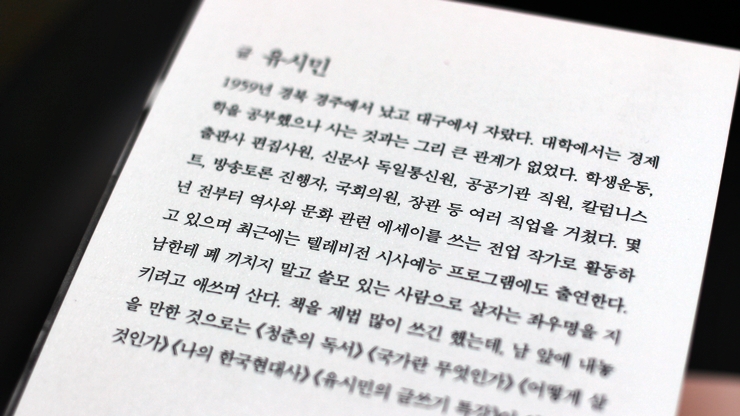 글 유시민
1959년 경북 경주에서 났고 대구에서 자랐다. 대학에서는 경제
학을 공부했으나 사는 것과는 그리 큰 관계가 없었다. 학생운동,
출판사 편집사원, 신문사 독일통신원, 공공기관 직원, 칼럼니스
트, 방송토론 진행자, 국회의원, 장관 등 여러 직업을 거쳤다. 몇
년 전부터 역사와 문화 관련 에세이를 쓰는 전업 작가로 활동하
고 있으며 최근에는 텔레비전 시사예능 프로그램에도 출연한다.
남한테 폐 끼치지 말고 쓸모 있는 사람으로 살자는 좌우명을 지
키려고 애쓰며 산다. 책을 제법 많이 쓰긴 했는데, 남 앞에 내놓
을 만한 것으로는 《청춘의 독서》 《국가란 무엇인가》 《어떻게 살
것인가》 《나의 한국현대사》 《유시민의 글쓰기 특강》